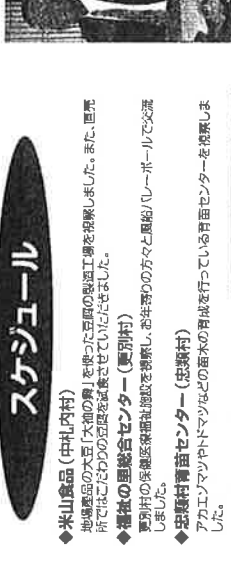 スケジュール
◆米山食品(中札内村)
地場産品の大豆「大袖の舞」を使った豆腐の製造工場を視察しました。また、直売
所ではこだわりの豆腐を試食させていただきました。
◆福祉の里総合センター(更別村)
更別村の保健医療福祉施設を視察し、お年寄りの方々と風船バレーボールで交流
しました。
◆忠類村育苗センター(忠類村)
アカエゾマツやトドマツなどの苗木の育成を行っている育苗センターを視察しま
した。